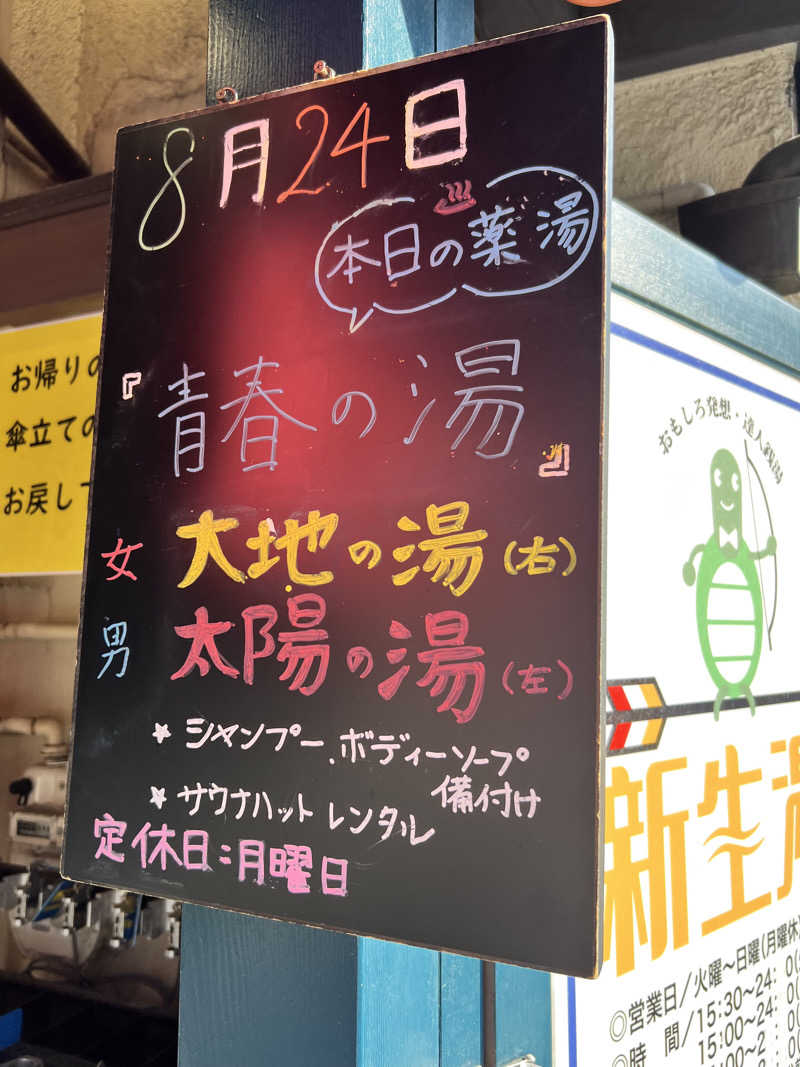 8月24日
本日の薬湯
『青春の湯』
女 大地の湯(右)
男 太陽の湯(左)
★シャンプー、ボディーソープ
備付け
★サウナハット レンタル
定休日:月曜日
お帰りの
傘立ての
お戻し
おもしろ発想・達人銭湯
新生湯
◎営業日/火曜~日曜(月曜休
◎時 間/15:30~24:0
15:00~24: